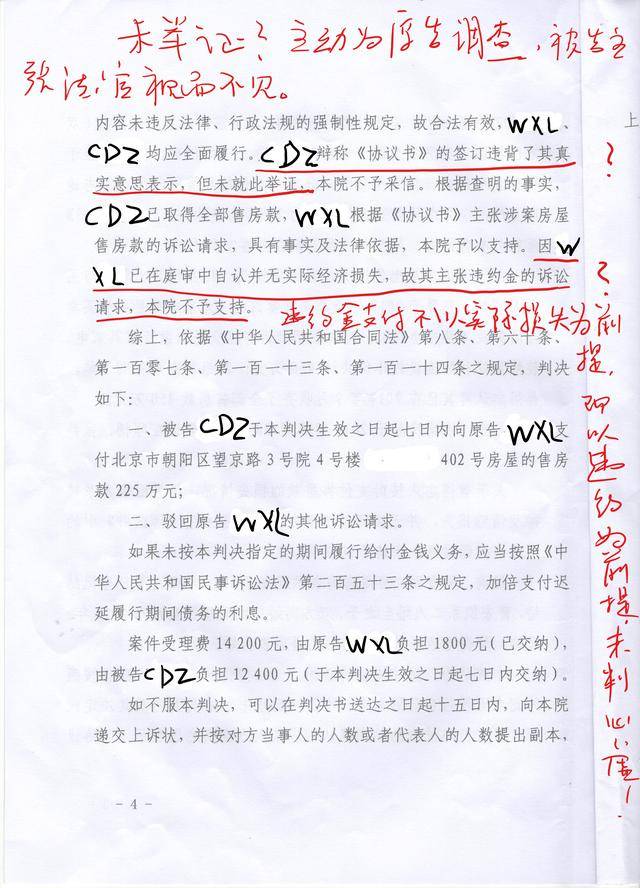 未举证？主动为原告调查，被告主
张法官视而不见。
内容未违反法律、行政法规的强制性规定，故合法有效，WXL、
上
CDZ均应全面履行。CDZ辩称《协议书》的签订违背了其真
？
实意思表示，但未就此举证，本院不予采信。根据查明的事实，
CDZ已取得全部售房款，WXL根据《协议书》主张涉案房屋
售房款的诉讼请求，具有事实及法律依据，本院予以支持。因W
XL已在庭审中自认并无实际经济损失，故其主张违约金的诉讼
？
请求，本院不予支持。
违约金支付不以实际损失为前
提，而以违约为前提，未判心虚！
综上，依据《中华人民共和国合同法》第八条、第六十条、
第一百零七条、第一百一十三条、第一百一十四条之规定，判决
如下：
一、被告CDZ于本判决生效之日起七日内向原告WXL支
付北京市朝阳区望京路3号院4号楼 402号房屋的售房
款225万元；
二、驳回原告WXL的其他诉讼请求。
如果未按本判决指定的期间履行给付金钱义务，应当按照《中
华人民共和国民事诉讼法》第二百五十三条之规定，加倍支付迟
延履行期间债务的利息。
案件受理费14 200元，由原告WXL负担1800元（已交纳），
由被告CDZ负担12 400元（于本判决生效之日起七日内交纳）。
如不服本判决，可以在判决书送达之日起十五日内，向本院
递交上诉状，并按对方当事人的人数或者代表人的人数提出副本，
- 4 -